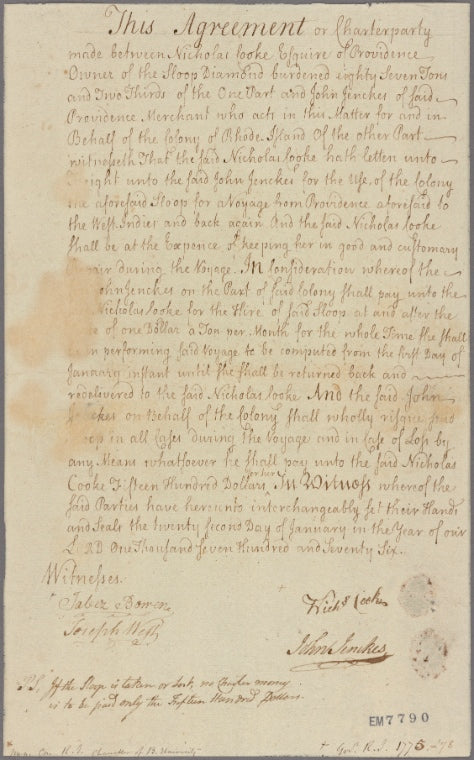 This Agreement or Charterparty
made between Nicholas Cooke Esquire of Providence
Owner of the Sloop Diamond burdened eighty Seven Tons
and Two Thirds of the One Part and John Jenckes of said
Providence Merchant who acts in this Matter for and in
Behalf of the Colony of Rhode-Island Of the other Part
witnesseth That the said Nicholas Cooke hath letten unto
Freight unto the said John Jenckes for the Use of the Colony
the aforesaid Sloop for a Voyage from Providence aforesaid to
the West Indies and back again And the said Nicholas Cooke
shall be at the Expence of keeping her in good and customary
Repair during the Voyage. In Consideration whereof the
John Jenckes on the Part of said Colony shall pay unto the
Nicholas Cooke for the Hire of said Sloop at and after the
of one Dollar a Ton per Month for the whole Time she shall
performing said Voyage to be computed from the first Day of
January instant until she shall be returned back and
redelivered to the said Nicholas Cooke And the said John
Jenckes on Behalf of the Colony shall wholly risque said
Sloop in all Cases during the Voyage and in Case of Loss by
any Means whatsoever he shall pay unto the said Nicholas
Cooke Fifteen Hundred Dollars In Witness whereof the
said Parties have hereunto interchangeably set their Hands
and Seals the twenty second Day of January in the Year of our
LORD One Thousand Seven Hundred and Seventy Six.
Witnesses
Jabez Bowen
Joseph West
Nichs Cooke
John Jenckes
P.S. If the Sloop is taken or Lost, no money
is to be paid only the Fifteen Hundred Dollars.
EM7790
Chancellor of B. University
+ Gov. R.I. 1775-78